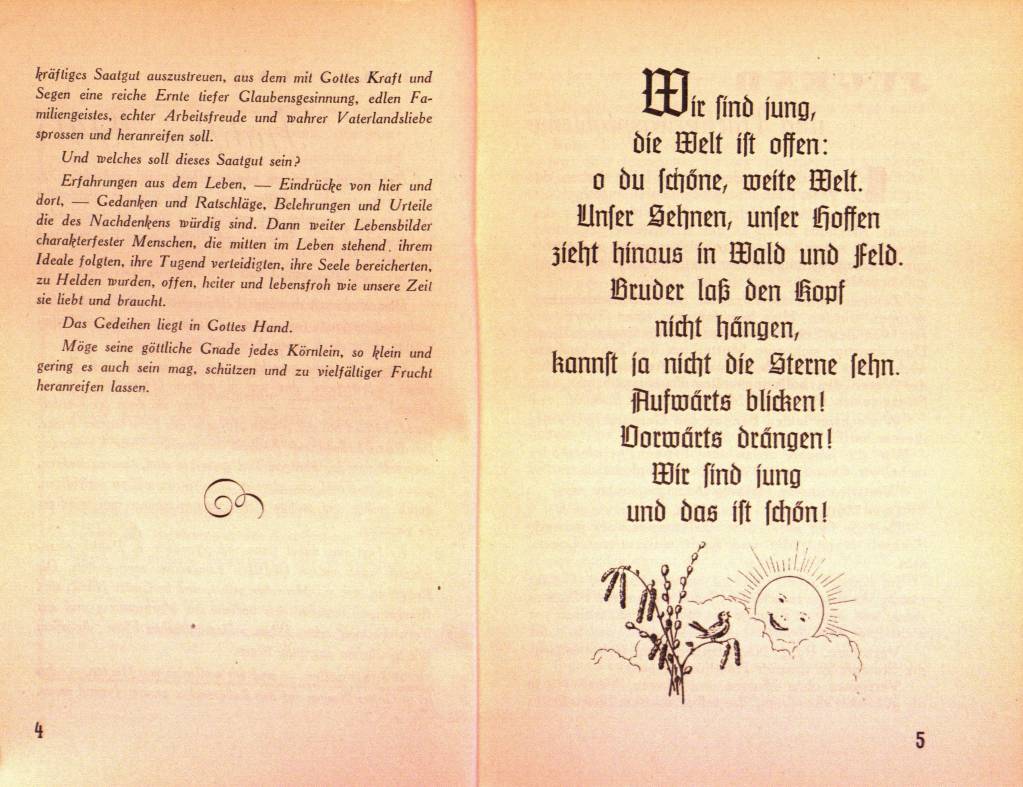 kräftiges Saatgut auszustreuen, aus dem mit Gottes Kraft und
Segen eine reiche Ernte tiefer Glaubensgesinnung, edlen Fa-
miliengeistes, echter Arbeitsfreude und wahrer Vaterlandsliebe
sprossen und heranreifen soll.
Und welches soll dieses Saatgut sein?
Erfahrungen aus dem Leben, — Eindrücke von hier und
dort, — Gedanken und Ratschläge, Belehrungen und Urteile
die des Nachdenkens würdig sind. Dann weiter Lebensbilder
charakterfester Menschen, die mitten im Leben stehend, ihrem
Ideale folgten, ihre Tugend verteidigten, ihre Seele bereicherten,
zu Helden wurden, offen, heiter und lebensfroh wie unsere Zeit
sie liebt und braucht.
Das Gedeihen liegt in Gottes Hand.
Möge seine göttliche Gnade jedes Körnlein, so klein und
gering es auch sein mag, schützen und zu vielfältiger Frucht
heranreifen lassen.
4
Wir sind jung,
die Welt ist offen:
o du schöne, weite Welt.
Unser Sehnen, unser Hoffen
zieht hinaus in Wald und Feld.
Bruder laß den Kopf
nicht hängen,
kannst ja nicht die Sterne sehn.
Aufwärts blicken!
Vorwärts drängen!
Wir sind jung
und das ist schön!
5